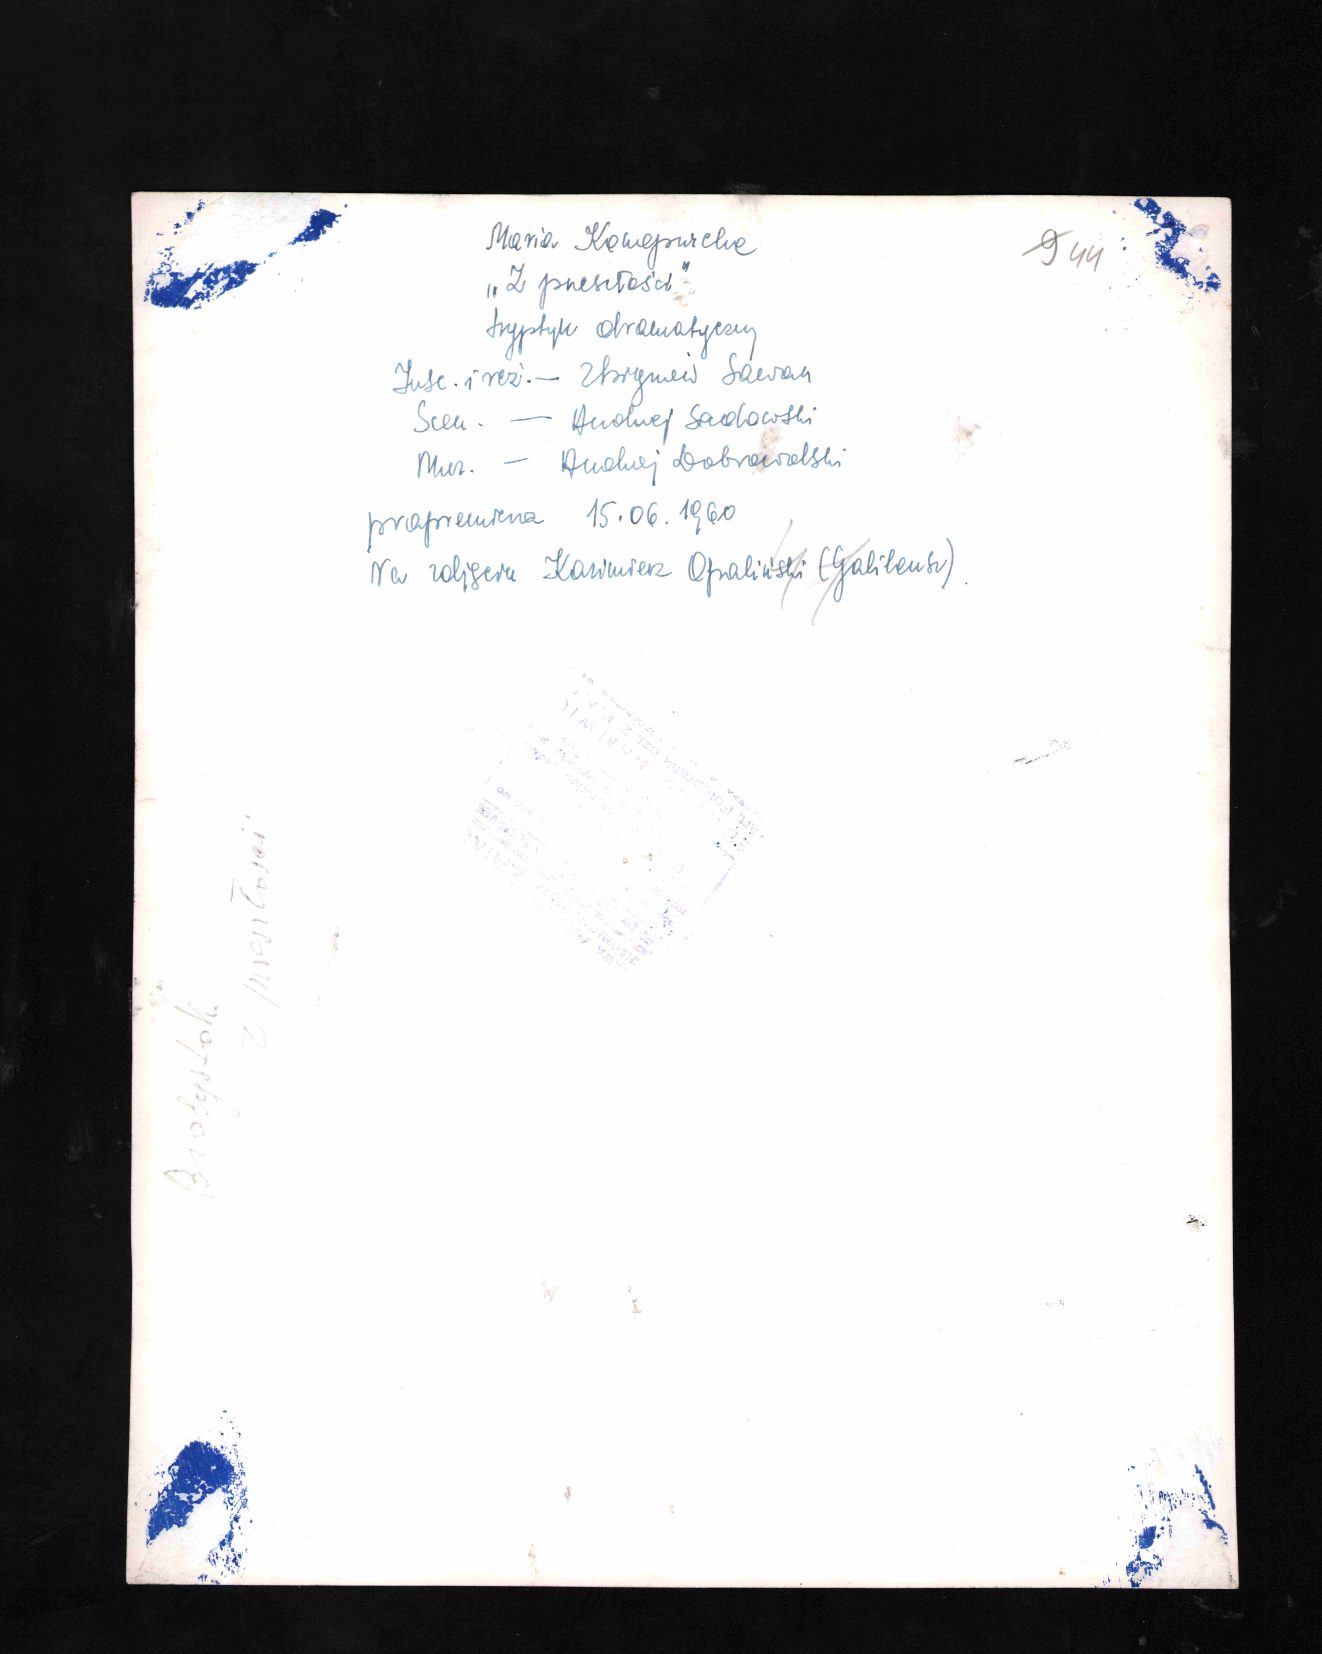 Maria Konopnicka
"Z przeszłości"
tryptyk dramatyczny
Insc. i reż. — Zbigniew Sawan
Scen. — Andrzej Sadowski
Muz. — Andrzej Dobrowolski
prapremiera 15.06.1960
Na zdjęciu Kazimierz Opaliński (Galileusz).
944
Białystok
Z przeszłości